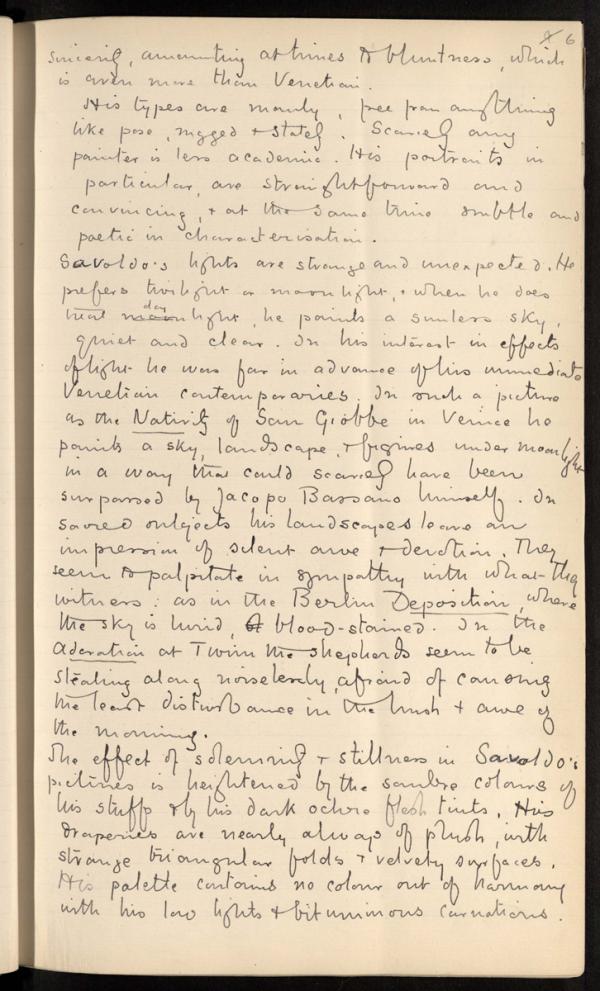 6
sincerity, amounting at times to bluntness, which
is even more than Venetian.
His types are manly, free from anything
like pose, rugged & stately. Scarcely any
painter is less academic. His portraits in
particular, are straightforward and
convincing, & at the same time subtle and
poetic in characterisation.
Savoldo's lights are strange and unexpected. He
prefers twilight or moonlight, & when he does
day
treat moonlight, he paints a sunless sky,
quiet and clear. In his interest in effects
of light he was far in advance of his immediate
Venetian contemporaries. In such a picture
as the Nativity of San Giobbe in Venice he
paints a sky, landscape, & figures under moonlight
in a way that could scarcely have been
surpassed by Jacopo Bassano himself. In
sacred subjects his landscapes leave an
impression of silent awe & devotion. They
seem to palpitate in sympathy with what they
witness: as in the Berlin Deposition, where
the sky is lurid, blood-stained. In the
Adoration at Turin the shepherds seem to be
stealing along noiselessly, afraid of causing
the least disturbance in the hush & awe of
the morning.
The effect of solemnity & stillness in Savoldo's
pictures is heightened by the sombre colours of
his stuffs & by his dark ochre flesh tints. His
draperies are nearly always of plush, with
strange triangular folds & velvety surfaces.
His palette contains no colour out of harmony
with his low lights & bituminous carnations.